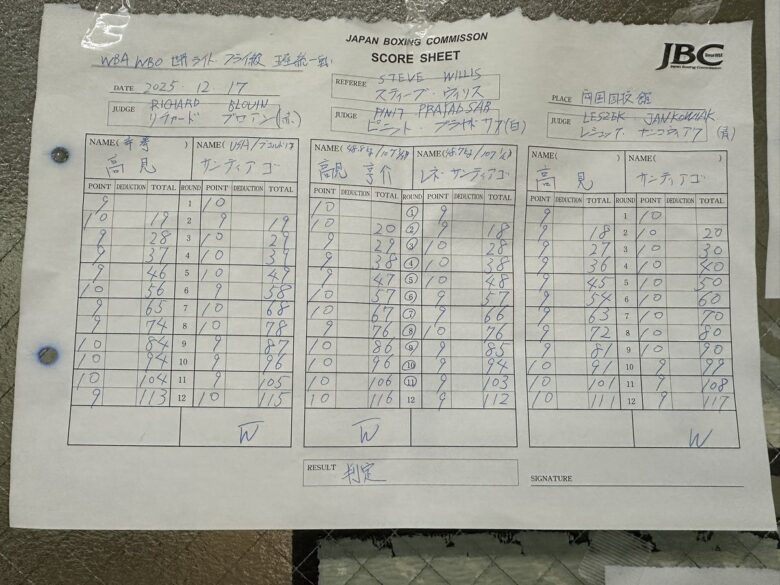 JAPAN BOXING COMMISSON
SCORE SHEET
JBC
WBA WBO 世界ライト フライ級 王座統一戦
DATE 2025. 12. 17
REFEREE STEVE WILLIS
スティーブ・ウィリス
PLACE 両国国技館
JUDGE RICHARD BLOUIN
リチャード ブロアン
JUDGE PINIT PRAYADSAB
ピニット プラヤドサブ(白)
JUDGE LESZEK JANKOWIAK
レシェック ヤンコヴィアク
NAME( ) NAME(USA/プエルトリコ
高見 サンティアゴ
NAME(48.8kg/107 NAME(48.7kg/107
高見 亨介 レネ・サンティアゴ
NAME( ) NAME( )
高見 サンティアゴ
POINT DEDUCTION TOTAL ROUND POINT DEDUCTION TOTAL
9 1 10
10 19 2 9 19
9 28 3 10 29
9 37 4 10 39
9 46 5 10 49
10 56 6 9 58
9 65 7 10 68
9 74 8 10 78
10 84 9 9 87
10 94 10 9 96
10 104 11 9 105
9 113 12 10 115
W
POINT DEDUCTION TOTAL ROUND POINT DEDUCTION TOTAL
10 1 9
10 20 2 9 18
9 29 3 10 28
9 38 4 10 38
9 47 5 10 48
10 57 6 9 57
10 67 7 9 66
9 76 8 10 76
10 86 9 9 85
10 96 10 9 94
10 106 11 9 103
10 116 12 9 112
W
POINT DEDUCTION TOTAL ROUND POINT DEDUCTION TOTAL
9 1 10
9 18 2 10 20
9 27 3 10 30
9 36 4 10 40
9 45 5 10 50
9 54 6 10 60
9 63 7 10 70
9 72 8 10 80
9 81 9 10 90
10 91 10 9 99
10 101 11 9 108
10 111 12 9 117
W
RESULT 判定
SIGNATURE